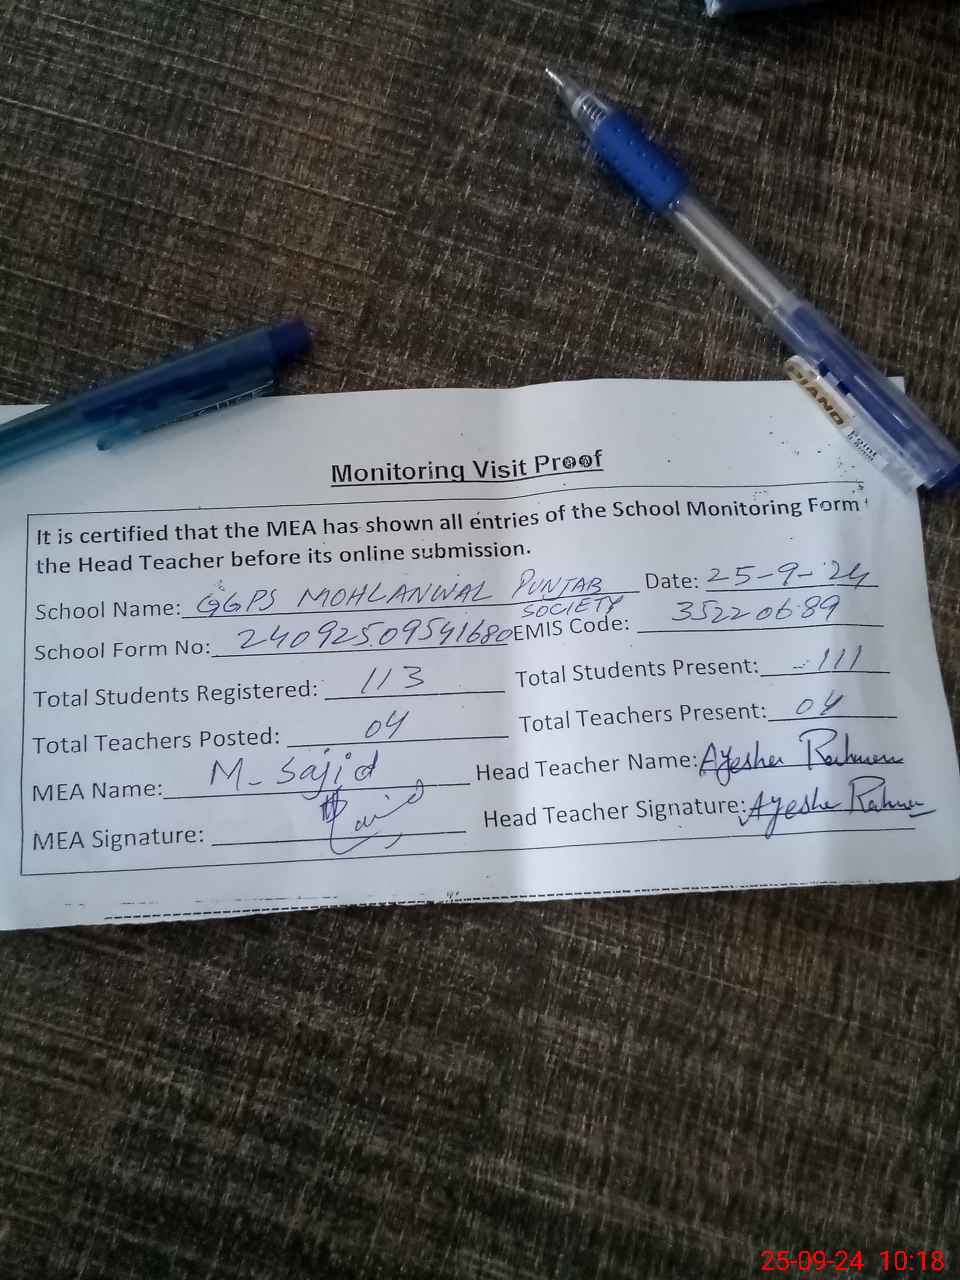 PIANO
Point
Monitoring Visit Proof
It is certified that the MEA has shown all entries of the School Monitoring Form
the Head Teacher before its online submission.
School Name: GGPS MOHLANWAL PUNJAB SOCIETY Date: 25-9-24
School Form No: 24092509541680 EMIS Code: 35220689
Total Students Registered: 113 Total Students Present: 111
Total Teachers Posted: 04 Total Teachers Present: 04
MEA Name: M. Sajid Head Teacher Name: Ayesha Rahman
MEA Signature: Head Teacher Signature: Ayesha Rahman
25-09-24 10:18